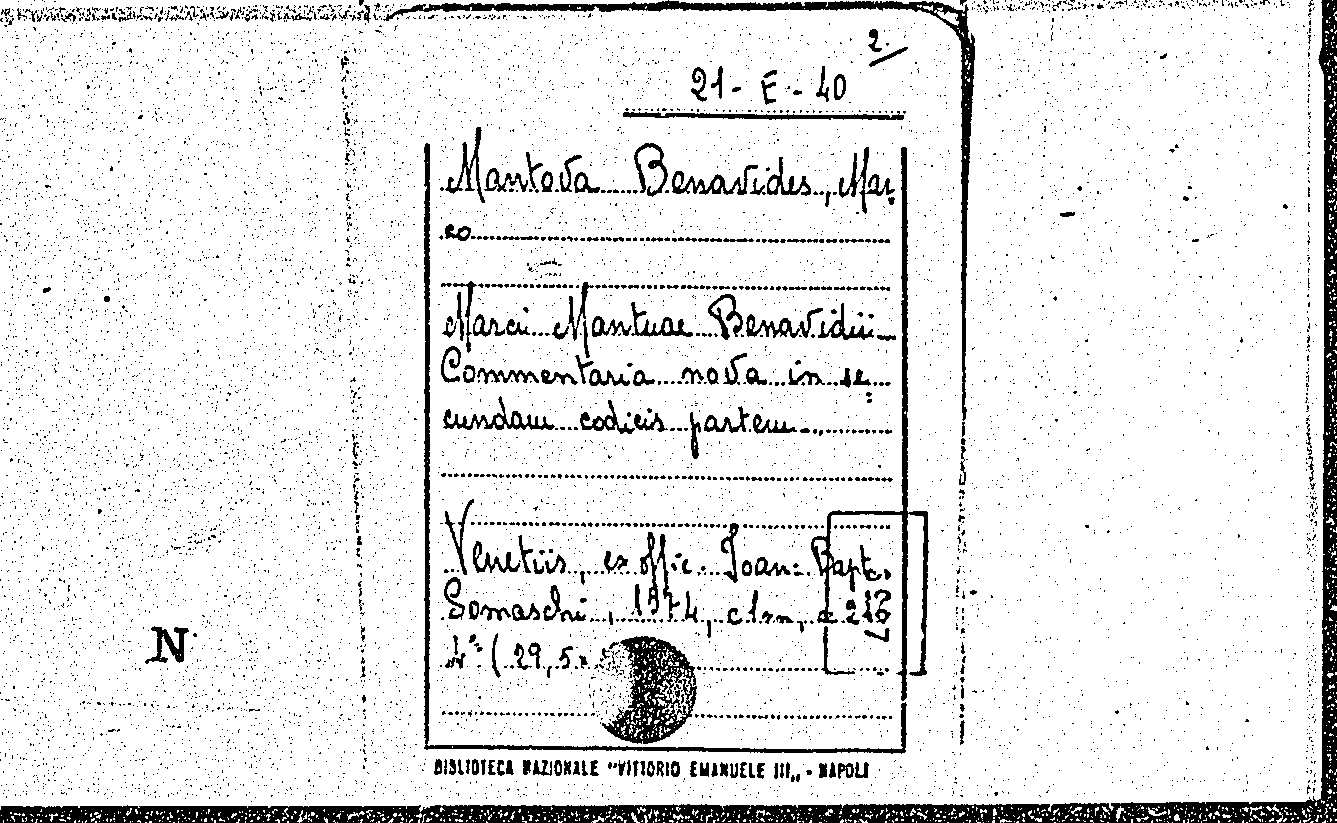 2.
21-E-40
Mantova Benavides, Mar
co
Marci Mantuae Benavidii
Commentaria nova in se
cundam codicis partem...
Venetiis, ex offic. Joan: Bapt.
Somaschi, 1574,
4° ( 29,5x
N
BIBLIOTECA NAZIONALE "VITTORIO EMANUELE III„ - NAPOLI